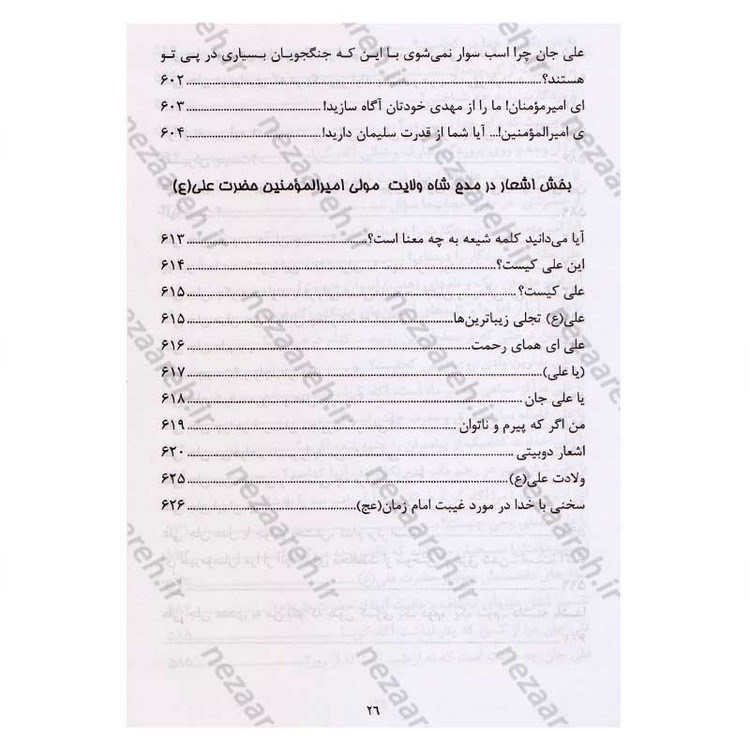 علی جان چرا اسب سوار نمی‌شوی با این که جنگجویان بسیاری در پی تو
هستند؟ ۶۰۲
ای امیرمؤمنان! ما را از مهدی خودتان آگاه سازید! ۶۰۳
ی امیرالمؤمنین!... آیا شما از قدرت سلیمان دارید! ۶۰۴
بخش اشعار در مدح شاه ولایت مولی امیرالمؤمنین حضرت علی(ع)
آیا می‌دانید کلمه شیعه به چه معنا است؟ ۶۱۳
این علی کیست؟ ۶۱۴
علی کیست؟ ۶۱۵
علی(ع) تجلی زیباترین‌ها ۶۱۵
علی ای همای رحمت ۶۱۶
(یا علی) ۶۱۷
یا علی جان ۶۱۸
من اگر که پیرم و ناتوان ۶۱۹
اشعار دوبیتی ۶۲۰
ولادت علی(ع) ۶۲۵
سخنی با خدا در مورد غیبت امام زمان(عج) ۶۲۶
۲۶
nezaareh.ir